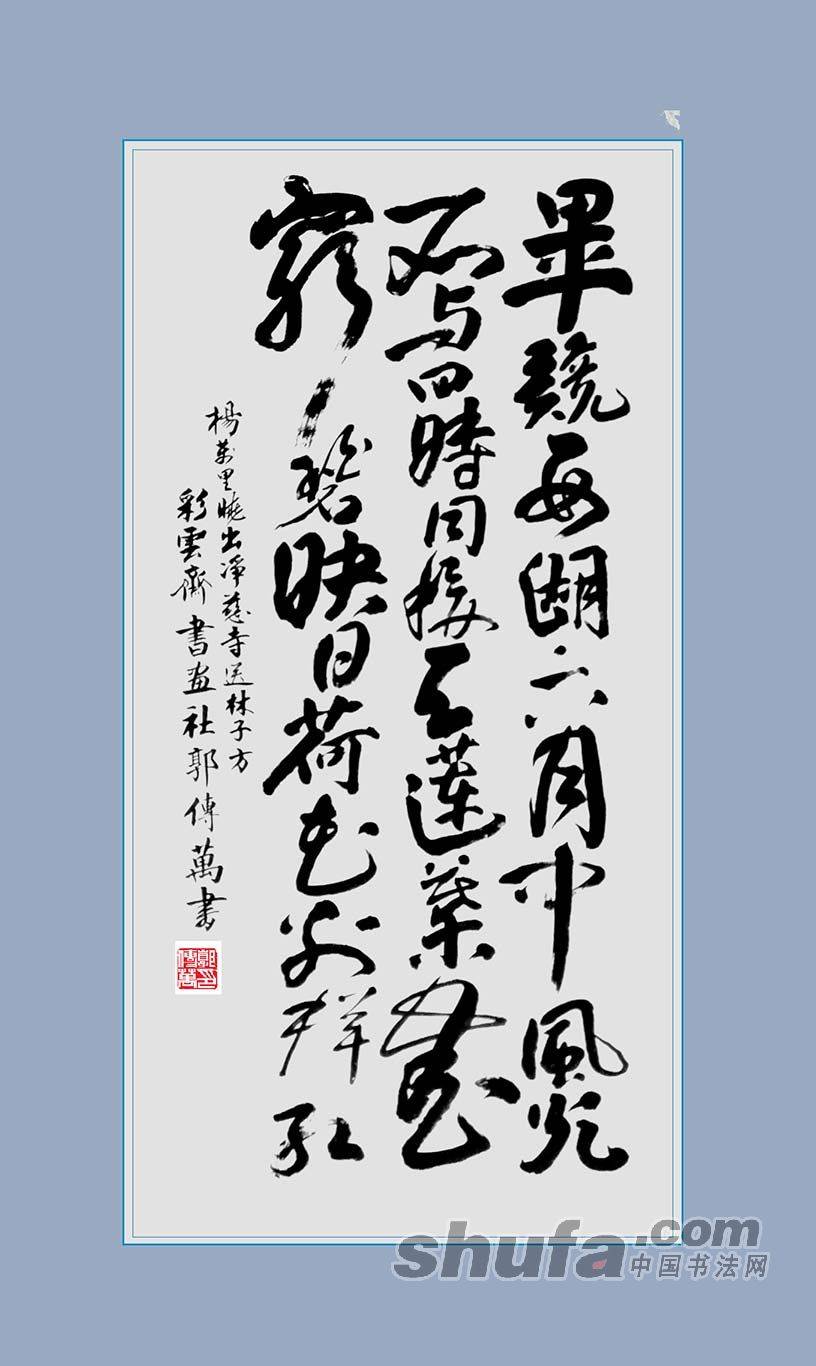 畢競西湖六月中風光
不与四時同接天蓮葉無
窮碧映日荷花別樣紅
楊萬里曉出淨慈寺送林子方
彩雲齋書画社郭傳萬書
郭印傳萬
shufa.com
中国书法网